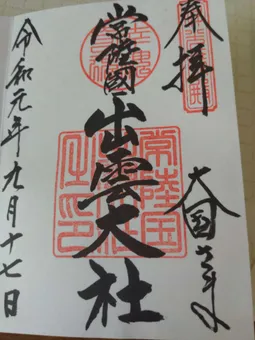 奉拝
大国さま
常陸國
出雲大社
常陸国
令和元年九月十七日